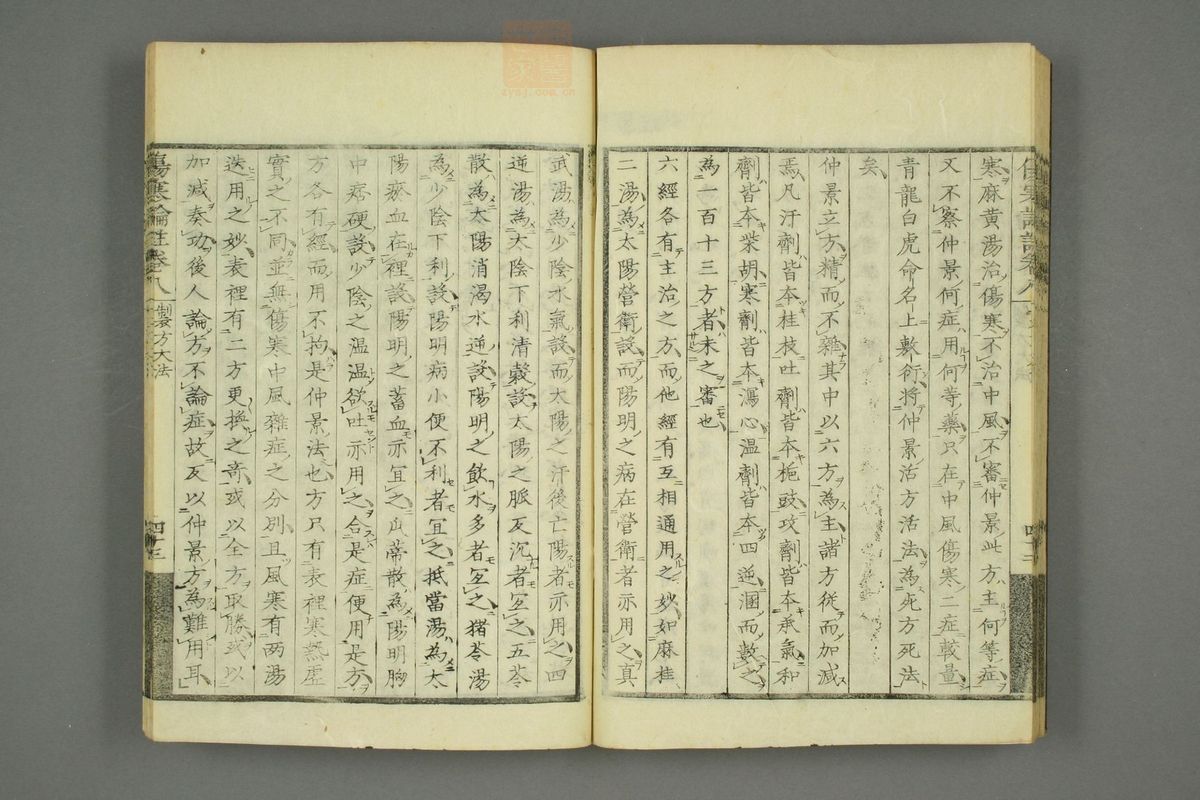 寒麻黄湯治傷寒不治中風不審仲景此方主何等症
又不察仲景何症用何等藥只在中風傷寒二症較量
青龍白虎命名上敷衍將仲景活方活法為死方死法
矣
仲景立方精而不雜其中以六方為主諸方從而加減
焉凡汗劑皆本桂枝吐劑皆本梔豉攻劑皆本承氣和
劑皆本柴胡寒劑皆本瀉心溫劑皆本四逆溷而數之
為一百十三方者未之審也
六經各有主治之方而他經有互相通用之妙如麻桂
二湯為太陽營衛設而陽明之病在營衛者亦用之真
武湯為少陰水氣設而太陽之汗後亡陽者亦用之四
逆湯為太陰下利清穀設太陽之脈反沉者宜之五苓
散為太陽消渴水逆設陽明之飲水多者宜之猪苓湯
為少陰下利設陽明病小便不利者宜之抵當湯為太
陽瘀血在裡設陽明之蓄血亦宜之瓜蒂散為陽明胸
中痞硬設少陰之温温欲吐亦用之合是症便用是方
方各有經而用不拘是仲景法也方只有表裡寒熱虛
實之不同並無傷寒中風雜症之分別且風寒有两湯
迭用之妙表裡有二方更換之奇或以全方取勝或以
加減奏功後人論方不論症故反以仲景方為難用耳
傷寒論註卷八
製方大法
四十三
四十二